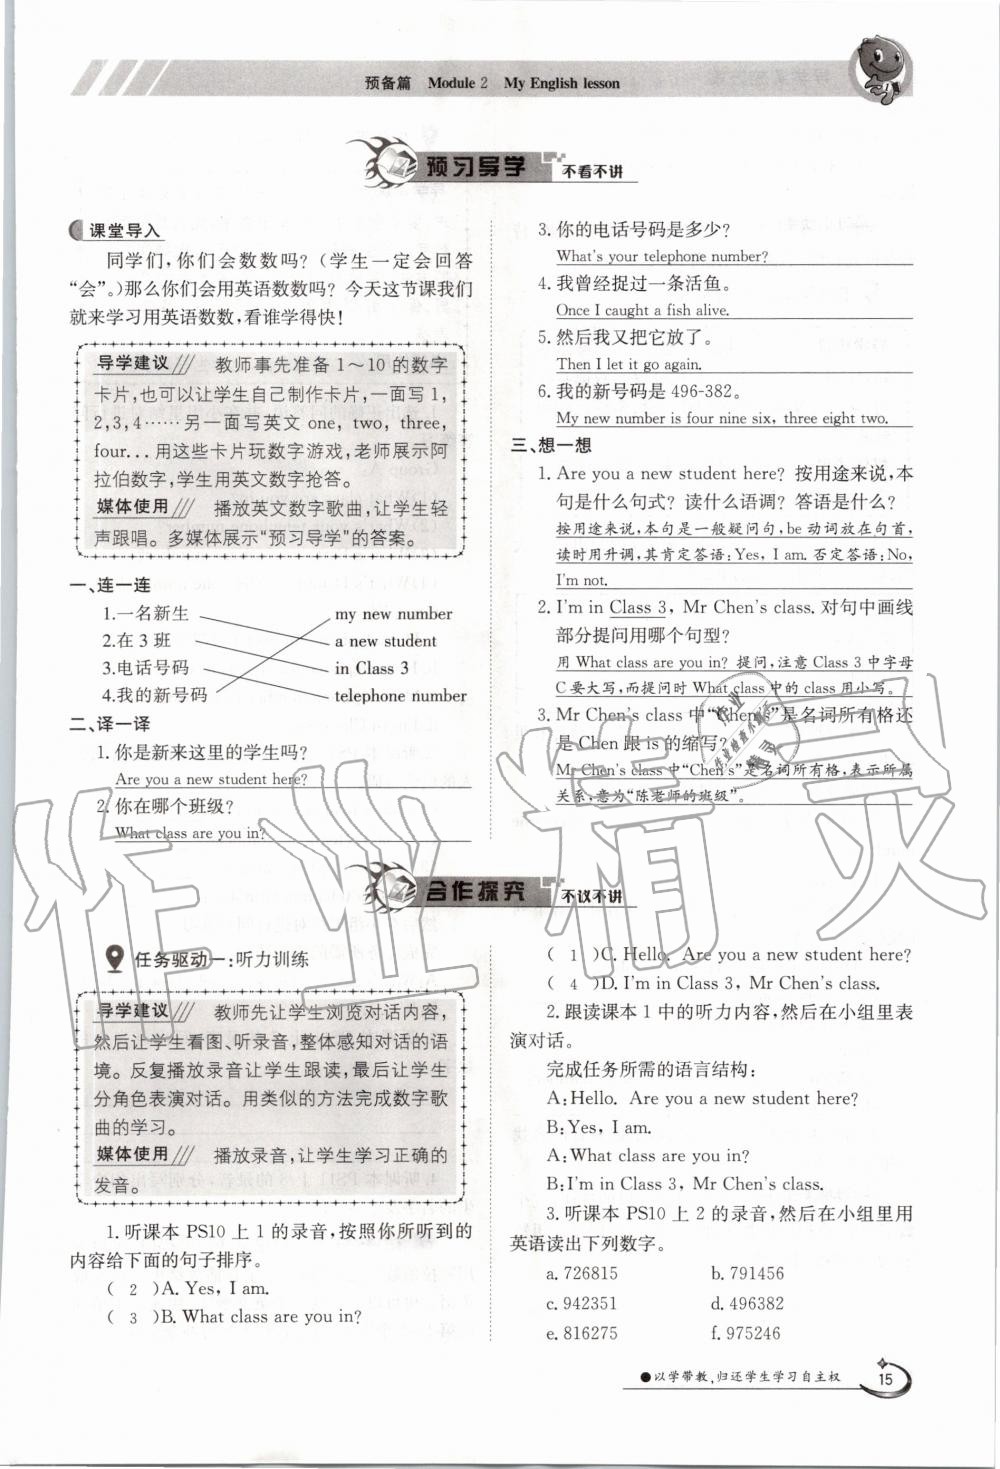 预备篇 Module 2 My English lesson
预习导学 不看不讲
课堂导入
同学们,你们会数数吗?(学生一定会回答
“会”。)那么你们会用英语数数吗? 今天这节课我们
就来学习用英语数数,看谁学得快!
导学建议/// 教师事先准备 1～10 的数字
卡片,也可以让学生自己制作卡片,一面写 1,
2,3,4……另一面写英文 one, two, three,
four...用这些卡片玩数字游戏,老师展示阿
拉伯数字,学生用英文数字抢答。
媒体使用/// 播放英文数字歌曲,让学生轻
声跟唱。多媒体展示“预习导学”的答案。
一、连一连
1.一名新生 my new number
2.在 3 班 a new student
3.电话号码 in Class 3
4.我的新号码 telephone number
二、译一译
1. 你是新来这里的学生吗?
Are you a new student here?
2. 你在哪个班级?
What class are you in?
3. 你的电话号码是多少?
What's your telephone number?
4. 我曾经捉过一条活鱼。
Once I caught a fish alive.
5. 然后我又把它放了。
Then I let it go again.
6. 我的新号码是 496-382。
My new number is four nine six, three eight two.
三、想一想
1. Are you a new student here? 按用途来说,本
句是什么句式? 读什么语调? 答语是什么?
按用途来说,本句是一般疑问句,be 动词放在句首,
读时用升调,其肯定答语:Yes, I am. 否定答语:No,
I'm not.
2. I'm in Class 3, Mr Chen's class. 对句中画线
部分提问用哪个句型?
用 What class are you in? 提问,注意 Class 3 中字母
C要大写,而提问时 What class 中的 class 用小写。
3. Mr Chen's class 中“Chen's”是名词所有格还
是 Chen 跟 is 的缩写?
Mr Chen's class 中“Chen's”是名词所有格,表示所属
关系,意为“陈老师的班级”。
合作探究 不议不讲
任务驱动一:听力训练
导学建议/// 教师先让学生浏览对话内容,
然后让学生看图、听录音,整体感知对话的语
境。反复播放录音让学生跟读,最后让学生
分角色表演对话。用类似的方法完成数字歌
曲的学习。
媒体使用/// 播放录音,让学生学习正确的
发音。
1.听课本 PS10 上 1 的录音,按照你所听到的
内容给下面的句子排序。
( 2 )A. Yes, I am.
( 3 )B. What class are you in?
( 1 )C. Hello. Are you a new student here?
( 4 )D. I'm in Class 3, Mr Chen's class.
2.跟读课本 1 中的听力内容,然后在小组里表
演对话。
完成任务所需的语言结构:
A:Hello. Are you a new student here?
B:Yes, I am.
A:What class are you in?
B:I'm in Class 3, Mr Chen's class.
3.听课本 PS10 上 2 的录音,然后在小组里用
英语读出下列数字。
a. 726815 b. 791456
c. 942351 d. 496382
e. 816275 f. 975246
●以学带教,归还学生学习自主权 15
作业精灵